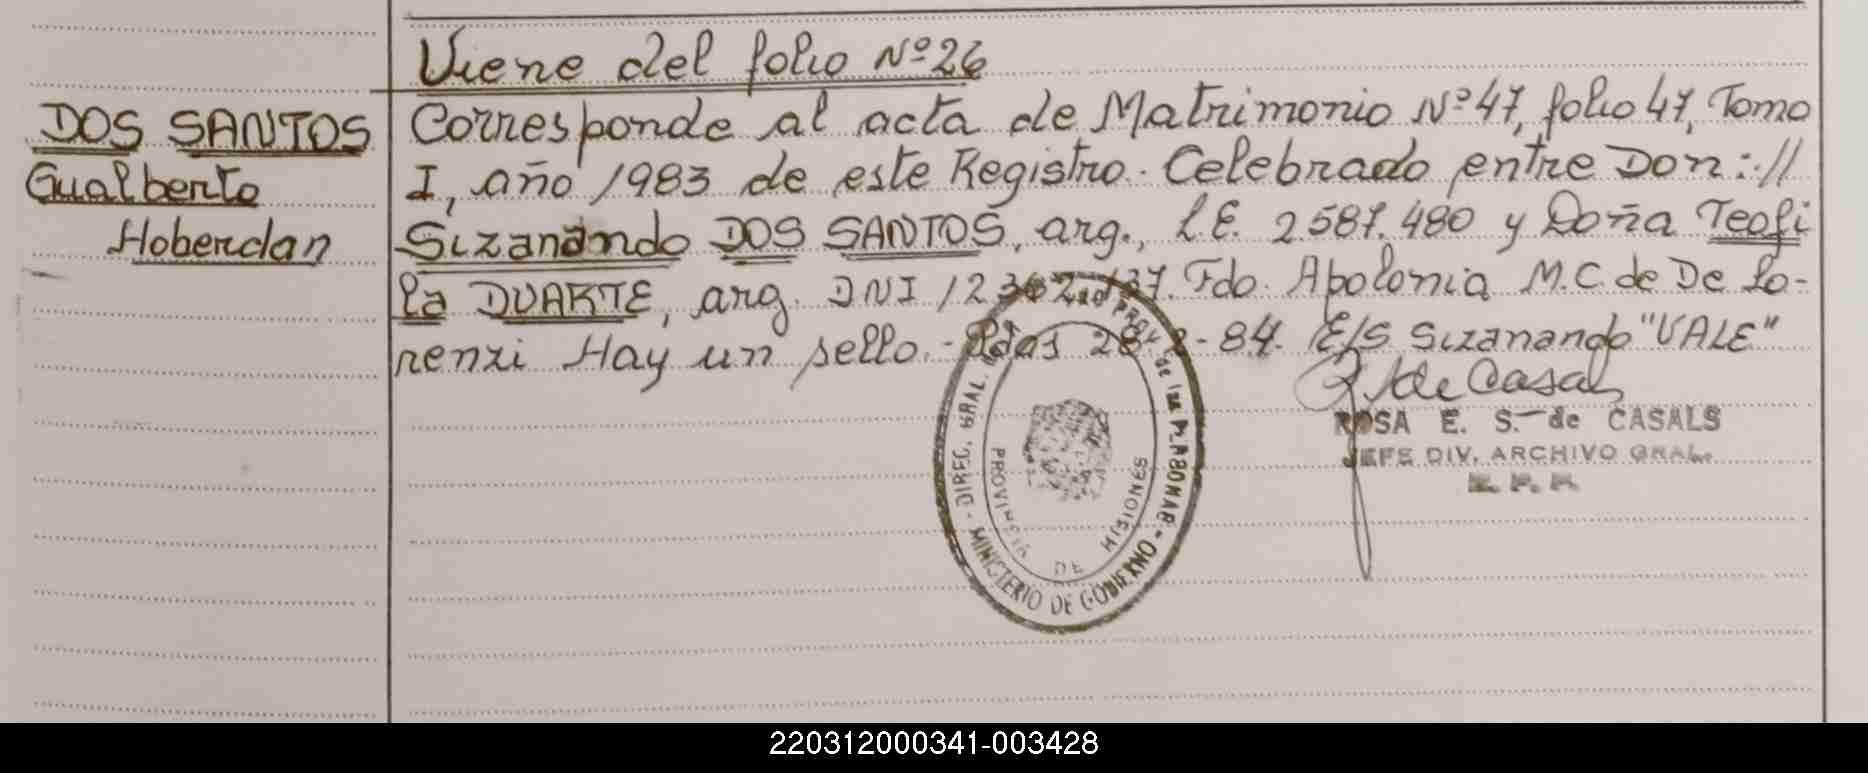 Viene del folio Nº 26
DOS SANTOS
Gualberto
Hoberdan
Corresponde al acta de Matrimonio Nº 47, folio 47, Tomo
I, año 1983 de este Registro. Celebrado entre Don: //
Sizanando DOS SANTOS, arg., L.E. 2587.480 y Doña Teofi
la DUARTE, arg. DNI Fdo. Apolonia M.C. de De Lo-
renzi Hay un sello.- Pdas 28 -84. E/S Sizanando "VALE"
R de Casals
ROSA E. S. de CASALS
JEFE DIV. ARCHIVO GRAL.
DIREC. GRAL.
MINISTERIO DE GOBIERNO
PROVINCIA DE MISIONES
220312000341-003428